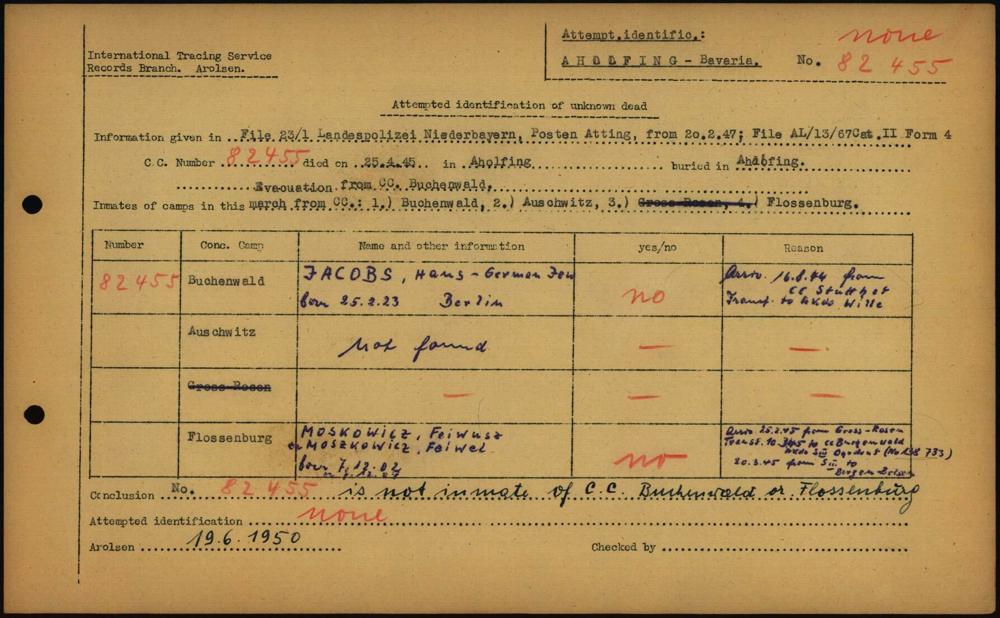 International Tracing Service
Records Branch. Arolsen.
Attempt.identific.: none
AHOLFING - Bavaria. No. 82455
Attempted identification of unknown dead
Information given in ..File 23/1 Landespolizei Niederbayern, Posten Atting, from 20.2.47; File AL/13/67Cat.II Form 4
C.C. Number 82455 died on 25.4.45 in Aholfing buried in Aholfing.
Evacuation from CC. Buchenwald.
Inmates of camps in this march from CC.: 1.) Buchenwald, 2.) Auschwitz, 3.) Gross-Rosen, 4.) Flossenburg.
Number Conc. Camp Name and other information yes/no Reason
82455 Buchenwald JACOBS, Hans - German Jew no Arriv. 16.8.44 from
born 25.2.23 Berlin CC Stutthof
Transf. to AKdo Wille
Auschwitz Not found — —
Gross-Rosen — — —
Flossenburg MOSKOWICZ, Feiwusz no Arriv. 25.2.45 from Gross-Rosen
MOSZKOWICZ, Feiwel
born 7.12.02
20.3.45 from SIII to
Bergen Belsen
Conclusion No. 82455 is not inmate of C.C. Buchenwald or Flossenbürg
Attempted identification none
Arolsen 19.6.1950 Checked by